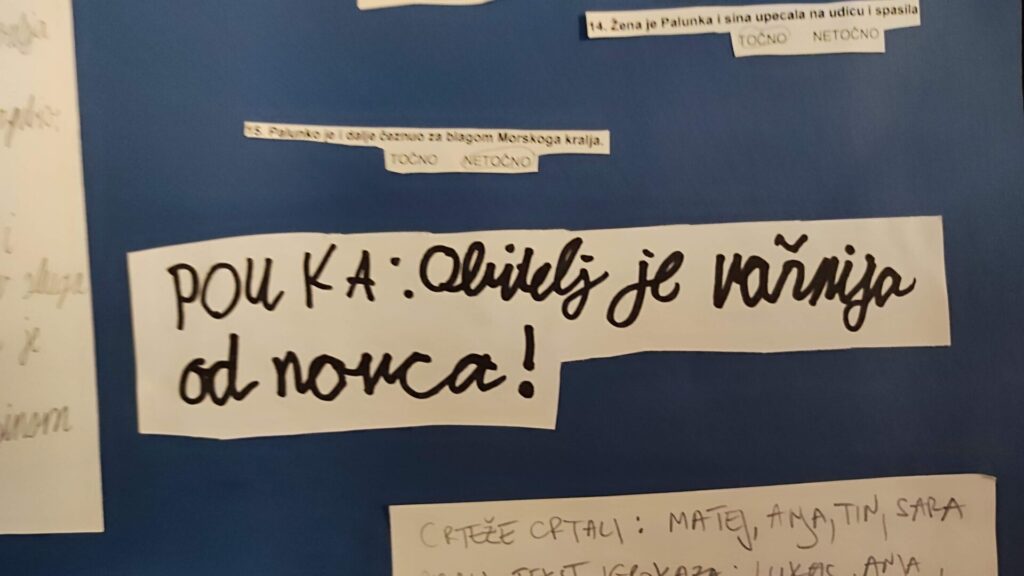 14. Žena je Palunka i sina upecala na udicu i spasila
TOČNO NETOČNO
15. Palunko je i dalje čeznuo za blagom Morskoga kralja.
TOČNO NETOČNO
POUKA: Obitelj je važnija
od novca!
i
je
CRTEŽE CRTALI: MATEJ, ANJA, TIN, SARA
TEKST IGROKAZA: LUKAS, ANJA,